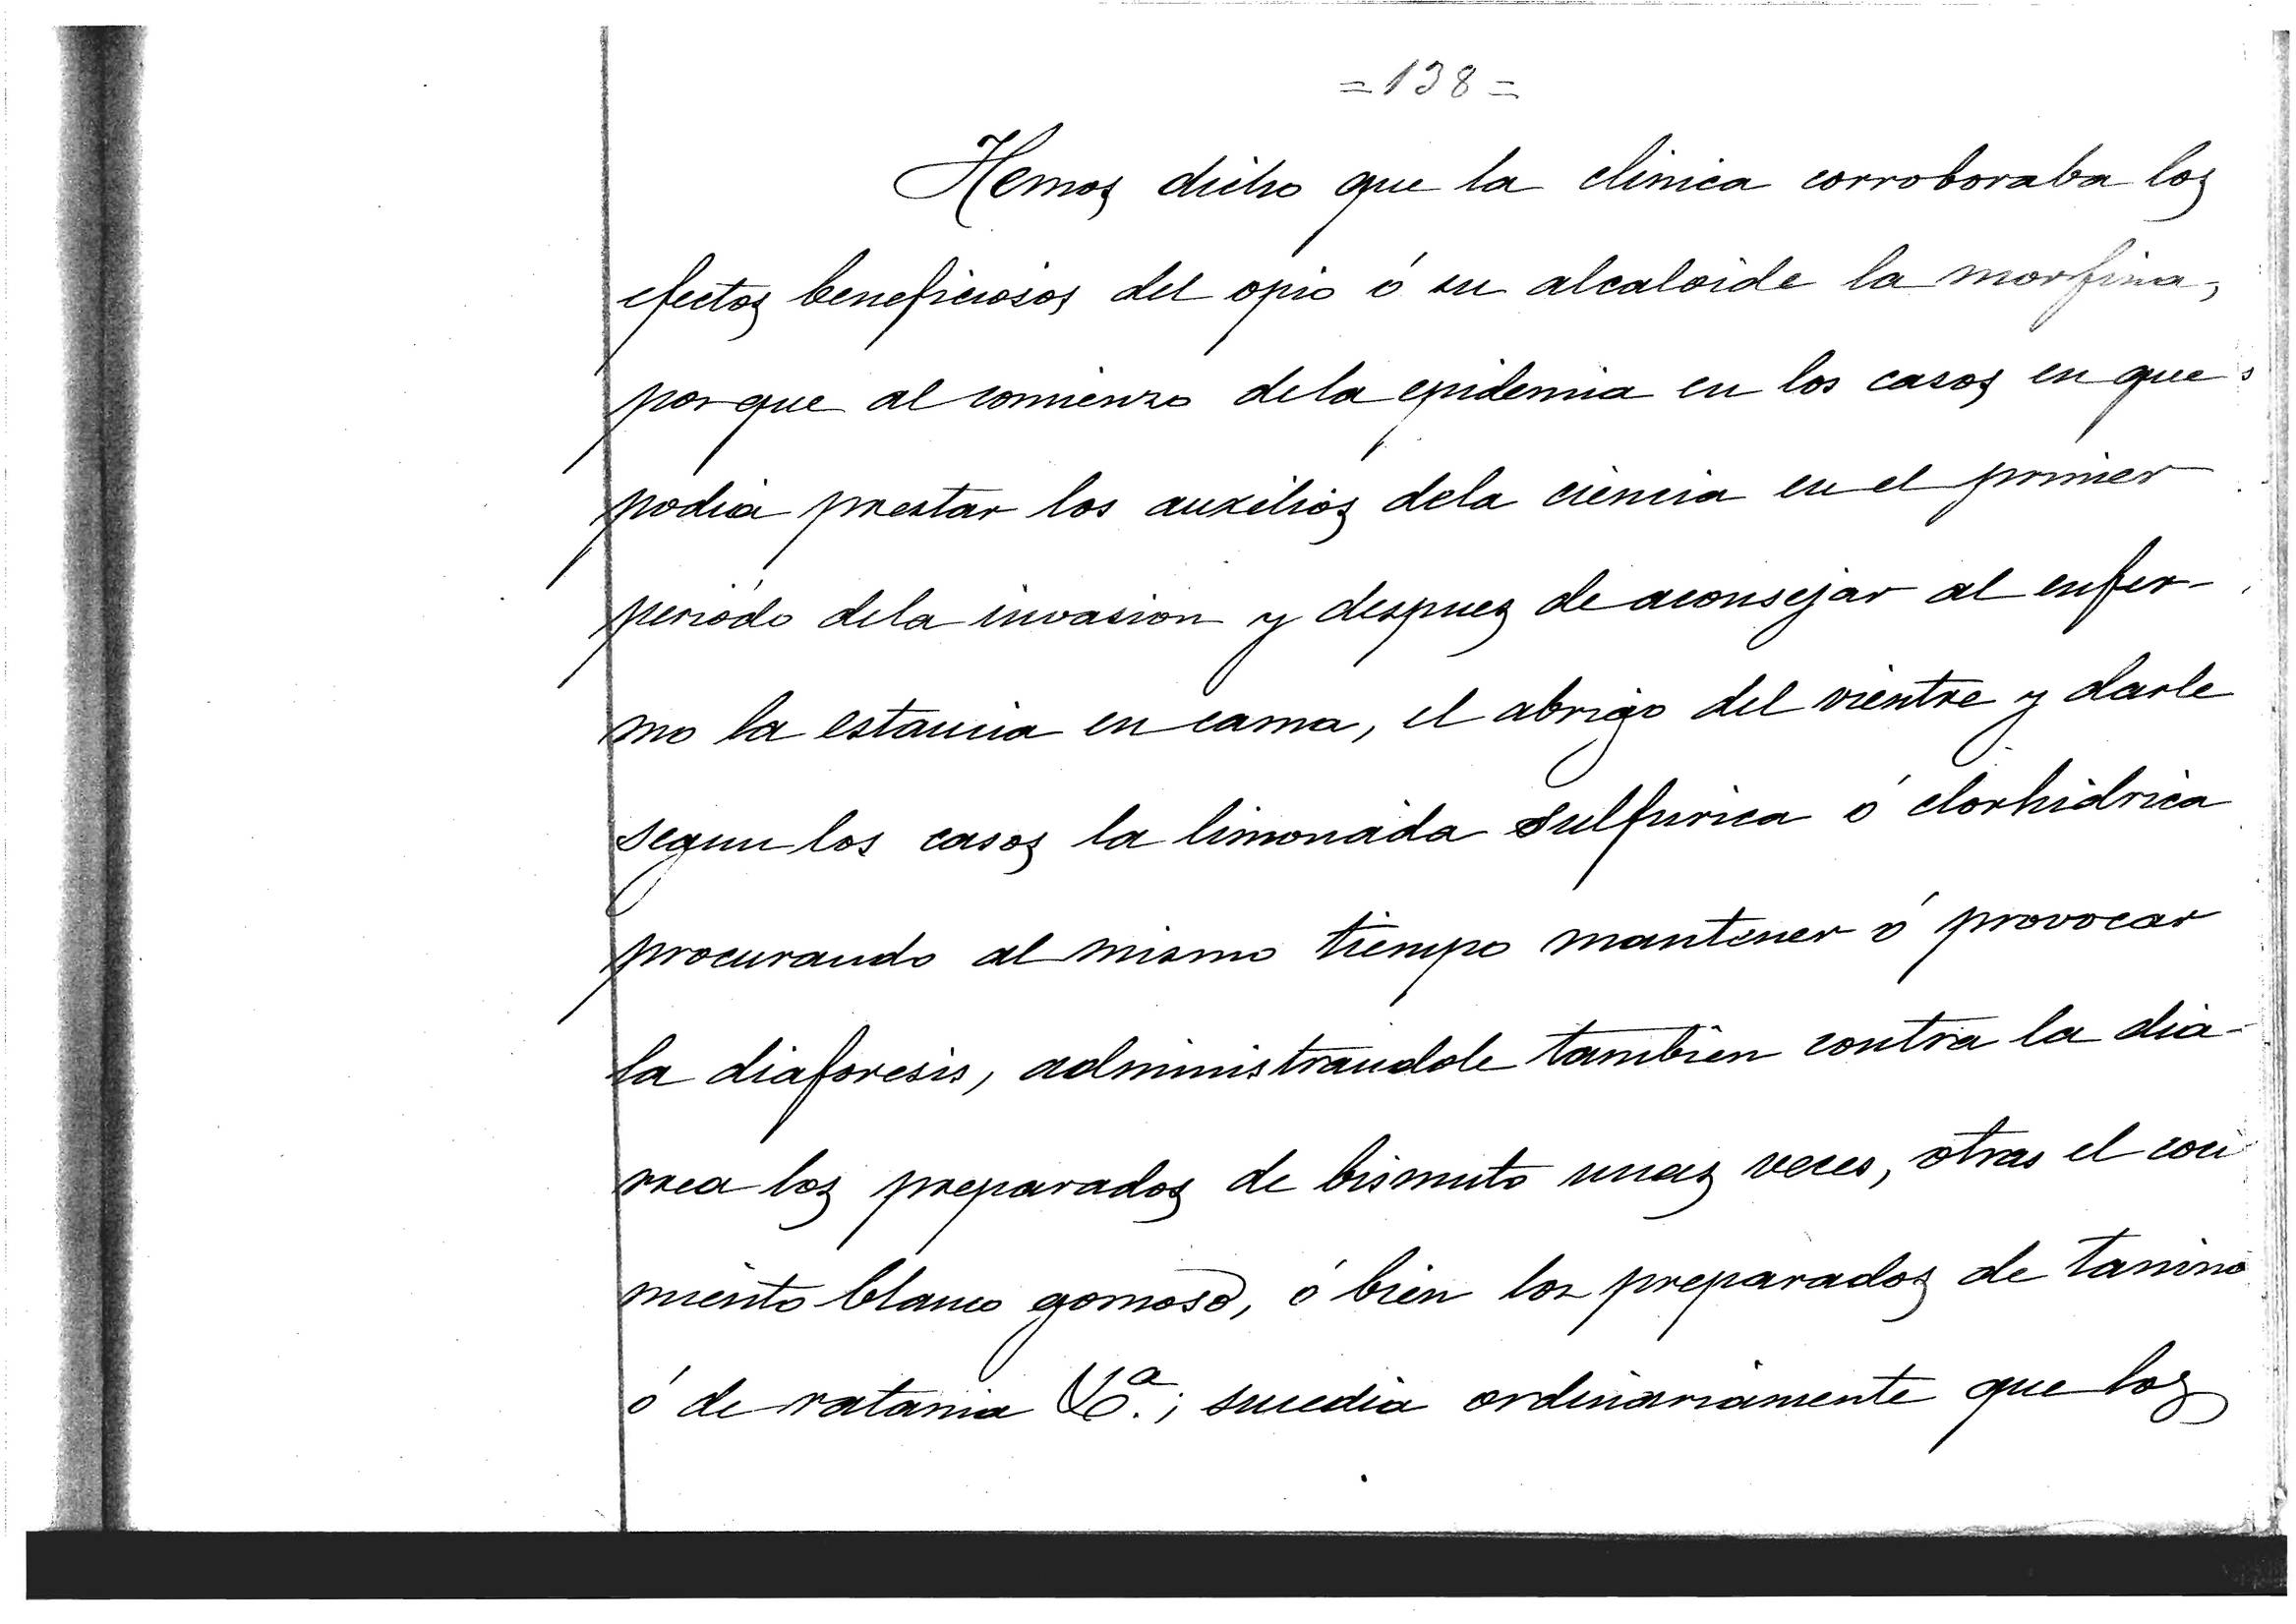 =138=
Hemos dicho que la clinica corroboraba los
efectos beneficiosos del opio ó su alcaloide la morfina,
porque al comienzo dela epidemia en los casos en que
podia prestar los auxilios dela ciencia en el primer
periódo dela invasion y despues de aconsejar al enfer-
mo la estancia en cama, el abrigo del vientre y darle
segun los casos la limonada sulfurica ó clorhidrica
procurando al mismo tiempo mantener ó provocar
la diaforesis, administrandole tambien contra la dia-
rrea los preparados de bismuto unas veces, otras el coci
miento blanco gomoso, ó bien los preparados de tanino
ó de ratania &ª.; sucedia ordinariamente que los